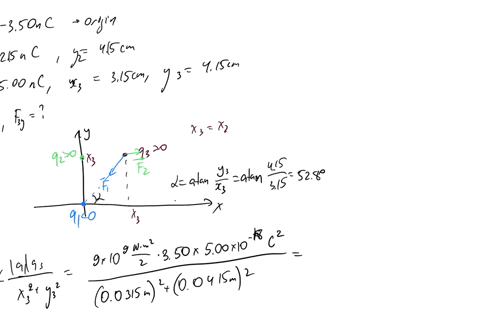 -3.50nC → origin
215nC, y2 = 4.15cm
5.00nC, x3 = 3.15cm, y3 = 4.15cm
, F3y = ?
y
x3 = x2
q2>0 x3 q3>0
F1 F2
α = atan y3/x3 = atan 4.15/3.15 = 52.8°
α
q1<0 x3 x
|q1q3 / x3² + y3² = 9×10⁹ N·m²/2 · 3.50 × 5.00×10⁻¹⁸ C² / (0.0315m)² + (0.0415m)² =